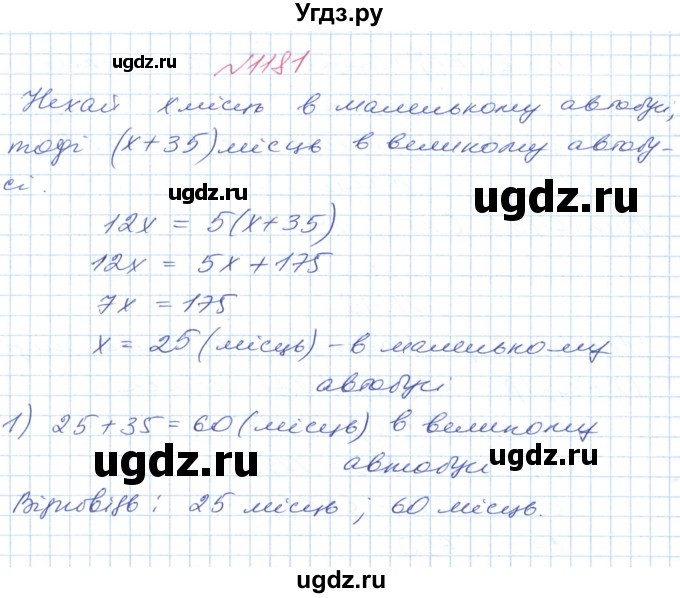 Угдз.ру
ugdz.ru
№1181
Нехай x місць в маленькому автобусі,
тоді (x+35) місць в великому автобу-
сі.
ugdz.ru
ugdz.ru
12x = 5(x+35)
12x = 5x + 175
7x = 175
ugdz.ru
x = 25 (місць) - в маленькому
автобусі
1) 25 + 35 = 60 (місць) в великому
автобусі
ugdz.ru
ugdz.ru
Відповідь: 25 місць; 60 місць.
ugdz.ru
ugdz.ru